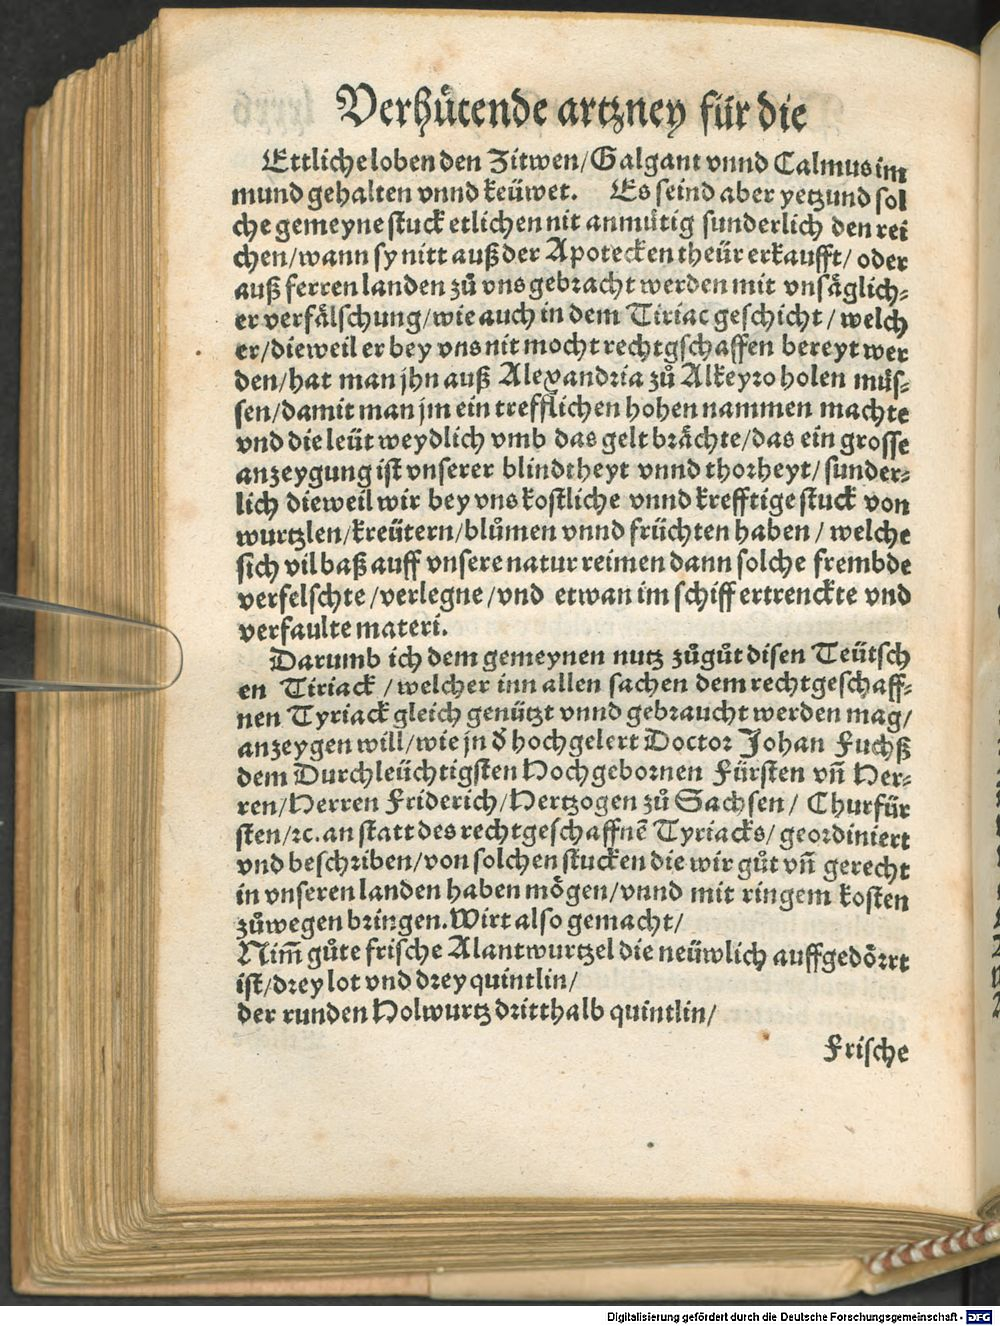 Verhuͤtende artzney für die
Ettliche loben den Zitwen/Galgant vnnd Calmus im
mund gehalten vnnd keüwet. Es seind aber yetzund sol
che gemeyne stuck etlichen nit anmuͤtig sunderlich den rei
chen/wann sy nitt auß der Apotecken theür erkaufft/ oder
auß ferren landen zuͦ vns gebracht werden mit vnsaͤglich⸗
er verfaͤlschung/wie auch in dem Tiriac geschicht/ welch
er/dieweil er bey vns nit mocht rechtgschaffen bereyt wer
den/hat man jhn auß Alexandria zuͦ Alkeyro holen muͤs⸗
sen/damit man jm ein trefflichen hohen nammen machte
vnd die leüt weydlich vmb das gelt braͤchte/das ein grosse
anzeygung ist vnserer blindtheyt vnnd thorheyt/ sunder⸗
lich dieweil wir bey vns kostliche vnnd krefftige stuck von
wurtzlen/kreütern/bluͦmen vnnd früchten haben/ welche
sich vil baß auff vnsere natur reimen dann solche frembde
verfelschte/verlegne/vnd etwan im schiff ertrenckte vnd
verfaulte materi.
Darumb ich dem gemeynen nutz zuͦguͦt disen Teütsch
en Tiriack/welcher inn allen sachen dem rechtgeschaff⸗
nen Tyriack gleich genützt vnnd gebraucht werden mag/
anzeygen will/wie jn d̕ hochgelert Doctor Johan Fuchß
dem Durchleüchtigsten Hochgebornen Fürsten vñ Her⸗
ren/Herren Friderich/Hertzogen zuͦ Sachsen/ Churfür
sten/ꝛc. an statt des rechtgeschaffnẽ Tyriacks/ geordiniert
vnd beschriben/von solchen stucken die wir guͦt vñ gerecht
in vnseren landen haben moͤgen/vnnd mit ringem kosten
zuͦwegen bringen. Wirt also gemacht/
Nim̃ guͦte frische Alantwurtzel die neüwlich auffgedoͤrrt
ist/drey lot vnd drey quintlin/
der runden Holwurtz dritthalb quintlin/
Frische
Digitalisierung gefördert durch die Deutsche Forschungsgemeinschaft - DFG